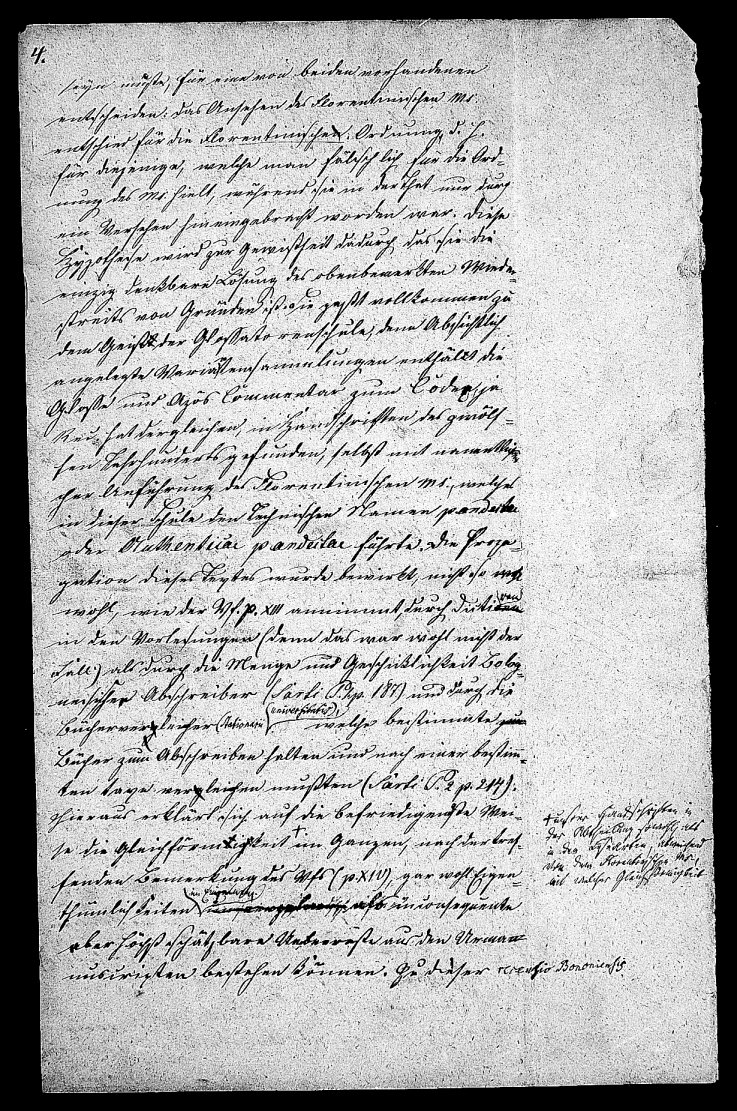 4.
seyn müste, für eine von beiden vorhandenen
entscheiden: das Ansehen des Florentinischen Ms.
entschied für die Florentinischen Ordnung, d. h.
für diejenige, welche man fälschlich für die Ord-
nung des Ms. hielt, während sie in der That nur durch
ein Versehen hineingebracht worden war. Diese
Hypothese wird zur Gewißheit dadurch, daß sie die
einzig denkbare Lösung des obenbemerkten Wider-
streits von Gründen ist. Sie paßt vollkommen zu
dem Geist der Glossatorenschule, denn Absichtlich
angelegte Variantensammlungen enthält die
Glosse und Azos Commentar zum Codex, ja
Rec. hat dergleichen, in Handschriften des zwölf-
ten Jahrhunderts gefunden, selbst mit namentli-
cher Anführung des Florentinischen Ms., welches
in dieser Schule den technischen Namen pandectae
oder Authenticae pandectae führte. Die Propa-
gation dieses Textes wurde bewirkt, nicht so
wohl, wie der Vf. p. XIII annimmt, durch Dictiren
in den Vorlesungen (denn das war wohl nicht der
Fall) als durch die Menge und Geschicklichkeit Bolog-
nesischer Abschreiber (Sarti P. 2 p. 187) und durch die
Büchervergleicher (stationarii universitatis), welche bestimmte
Bücher zum Abschreiben halten und nach einer bestim-
ten taxe vergleichen mußten (Sarti P. 2 p. 214).
Hieraus erklärt sich auf die befriedigendste Wei-
se die Gleichförmigkeit + im Ganzen, nach der tref-
fenden Bemerkung des Vfs (p. XIV), gar wohl Eigen-
thümlichkeiten im Einzelnen als inconsequente
aber höchst schätzbare Ueberreste aus den Urman-
nuscripten bestehen können. Zu dieser recensio Bononiensis
+ unsrer Handschriften in
der Abtheilung sowohl, als
in den Lesearten, abweichend
von dem Florentinischen Ms.,
mit welcher Gleichförmigkeit